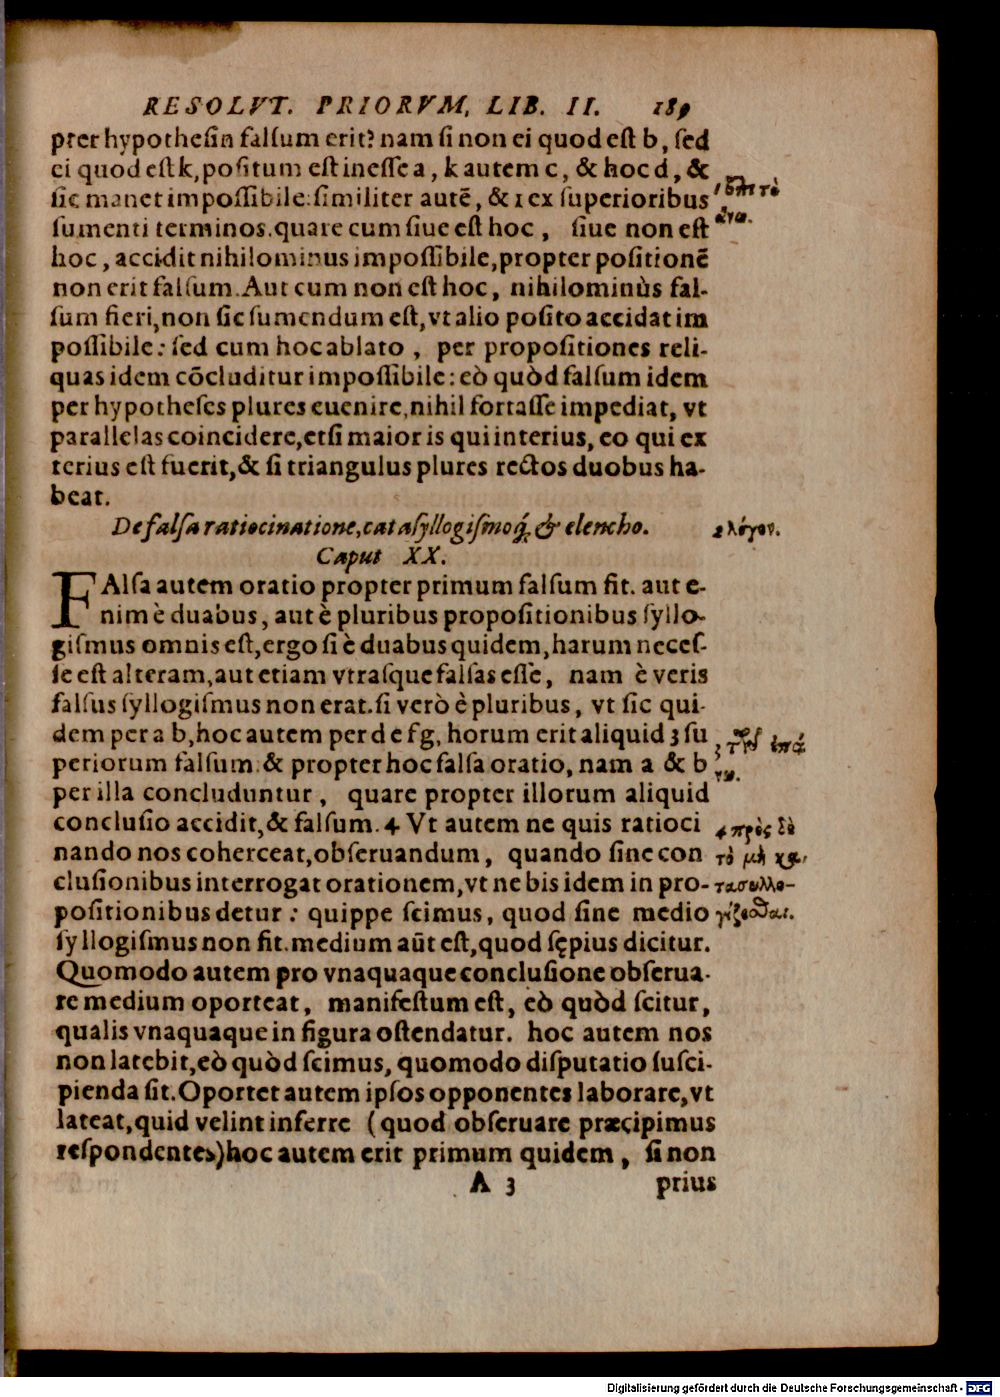 RESOLVT. PRIORVM, LIB. II. 189
pter hypothesin falsum erit? nam si non ei quod est b, sed
ei quod est k, positum est inesse a, k autem c, & hoc d, &
sic manet impossibile: similiter autē, & 1 ex superioribus
sumenti terminos. quare cum siue est hoc, siue non est
hoc, accidit nihilominus impossibile, propter positionē
non erit falsum. Aut cum non est hoc, nihilominùs fal-
sum fieri, non sic sumendum est, vt alio posito accidat im
possibile: sed cum hoc ablato, per propositiones reli-
quas idem cōcluditur impossibile: eò quòd falsum idem
per hypotheses plures euenire, nihil fortasse impediat, vt
parallelas coincidere, etsi maior is qui interius, eo qui ex
terius est fuerit, & si triangulus plures rectos duobus ha-
beat.
De falsa ratiocinatione, catasyllogismoq́, & elencho.
2 λόγον.
Caput XX.
FAlsa autem oratio propter primum falsum fit. aut e-
nim è duabus, aut è pluribus propositionibus syllo-
gismus omnis est, ergo si è duabus quidem, harum neces-
se est alteram, aut etiam vtrasque falsas esse, nam è veris
falsus syllogismus non erat. si verò è pluribus, vt sic qui-
dem per a b, hoc autem per d e f g, horum erit aliquid 3 su
periorum falsum. & propter hoc falsa oratio, nam a & b
per illa concluduntur, quare propter illorum aliquid
conclusio accidit, & falsum. 4 Vt autem ne quis ratioci
nando nos coherceat, obseruandum, quando sine con
clusionibus interrogat orationem, vt ne bis idem in pro-
positionibus detur: quippe scimus, quod sine medio
4 πρὸς δὲ
τὸ μὴ κα-
τασυλλο-
γίζεσθαι.
syllogismus non fit. medium aūt est, quod sępius dicitur.
Quomodo autem pro vnaquaque conclusione obserua-
re medium oporteat, manifestum est, eò quòd scitur,
qualis vnaquaque in figura ostendatur. hoc autem nos
non latebit, eò quòd scimus, quomodo disputatio susci-
pienda sit. Oportet autem ipsos opponentes laborare, vt
lateat, quid velint inferre (quod obseruare præcipimus
respondentes) hoc autem erit primum quidem, si non
A 3 prius
Digitalisierung gefördert durch die Deutsche Forschungsgemeinschaft - DFG